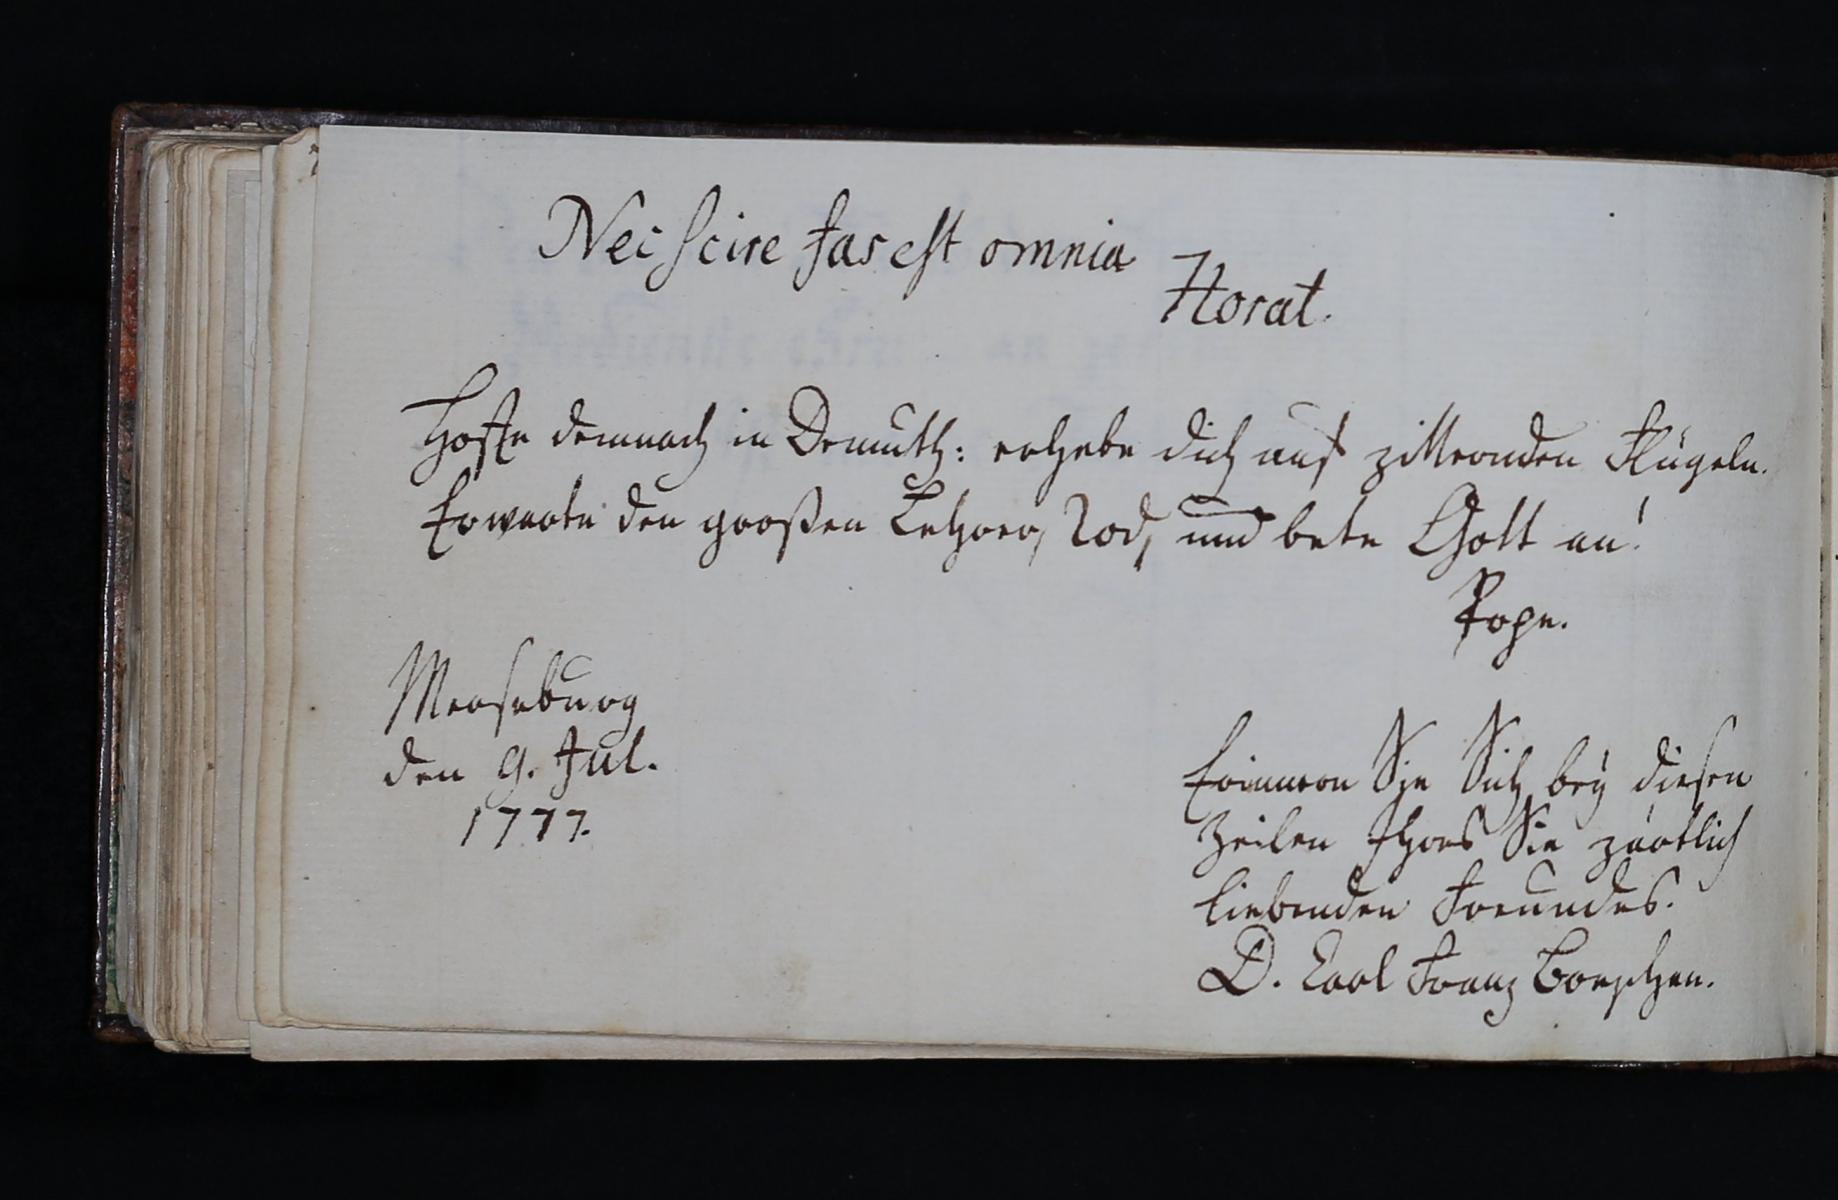 Nec scire fas est omnia
Horat.
Hoffe demnach in Demuth: erhebe dich auf zitternden Flügeln.
Erwarte den großen Lehrer, Tod, und bete Gott an!
Pope.
Merseburg
den 9. Jul.
1777.
Erinnern Sie Sich bey diesen
Zeilen Ihres Sie zärtlich
liebenden Freundes.
D. Carl Franz